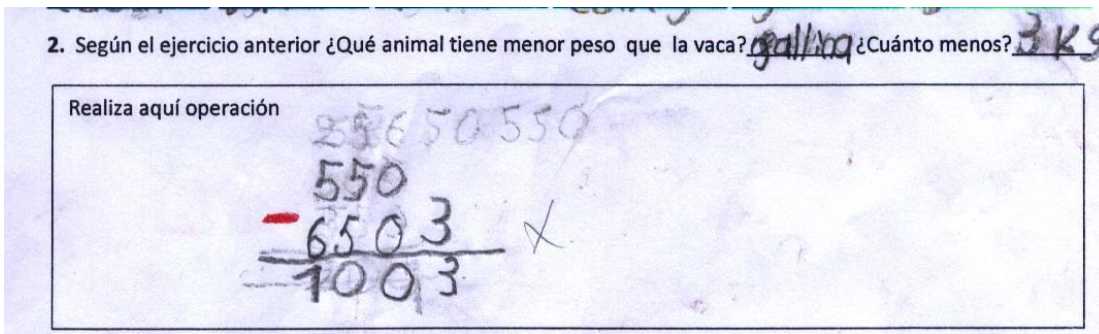 2. Según el ejercicio anterior ¿Qué animal tiene menor peso que la vaca? gallina ¿Cuánto menos? 3 Kg
Realiza aquí operación
25650550
550
- 6503 X
1003